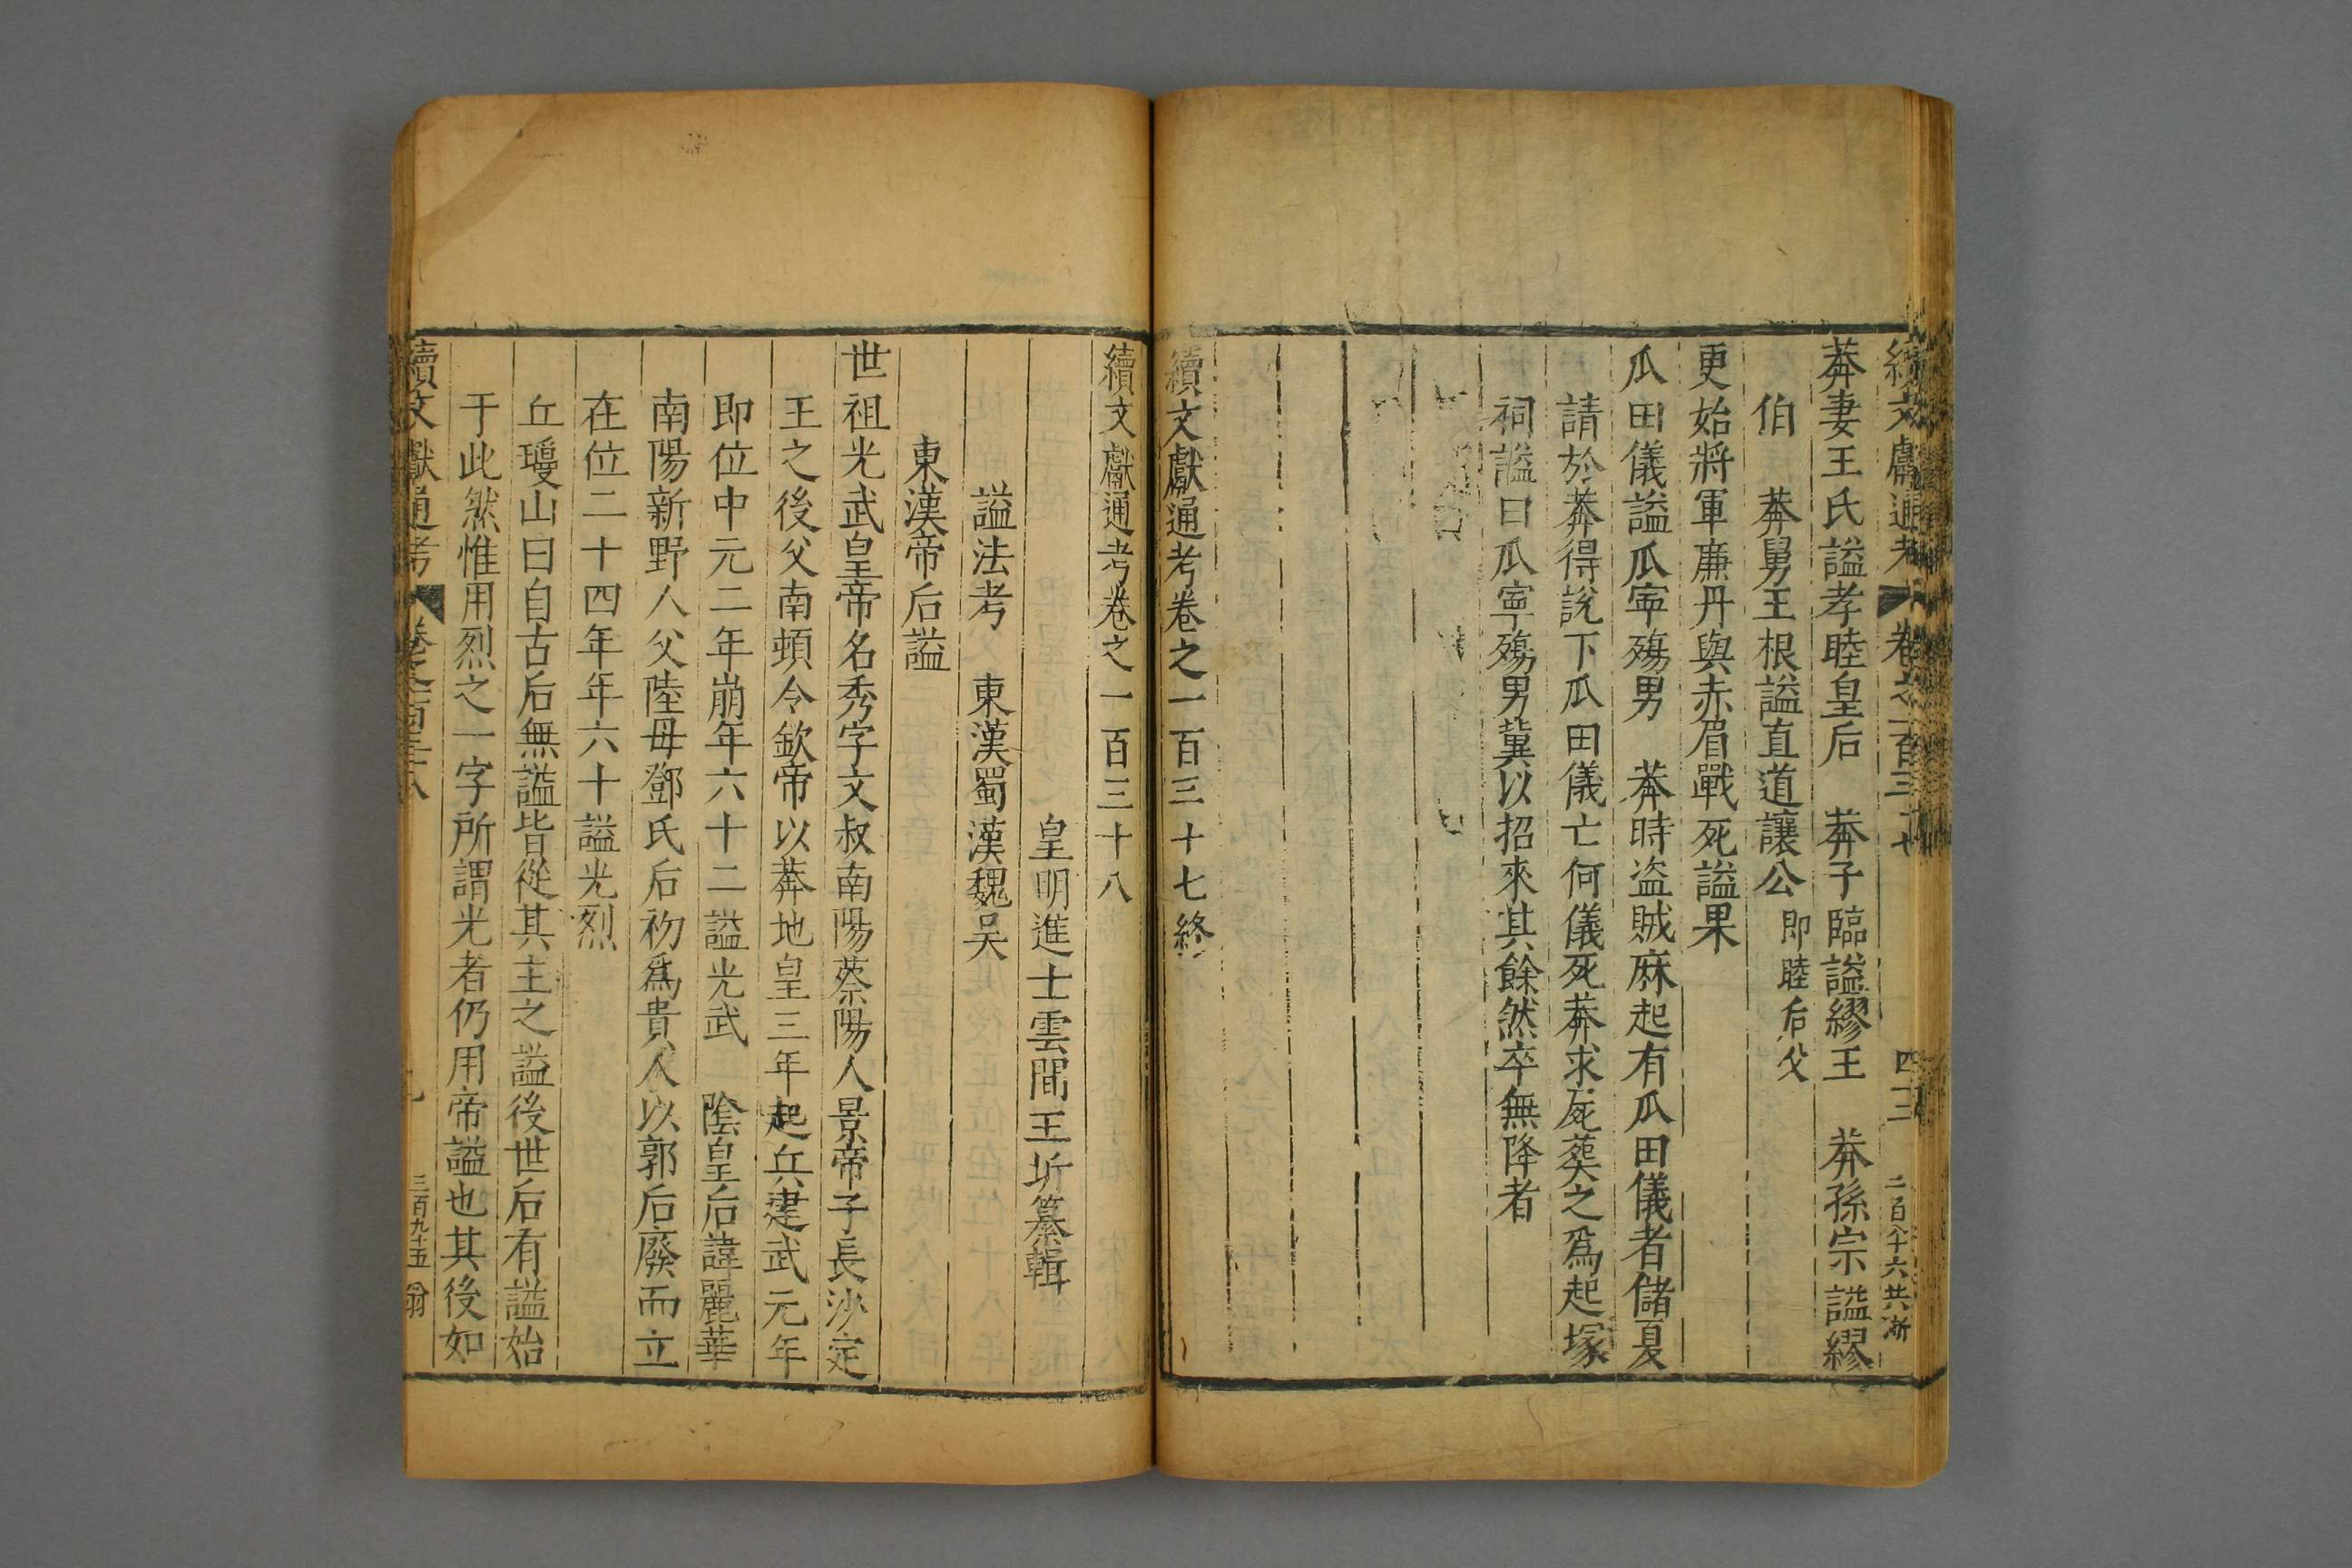 續文獻通考 卷之一百三十七 四十三 二百八十六 共 浙
莽妻王氏謚孝睦皇后 莽子臨謚繆王 莽孫宗謚繆
伯 莽舅王根謚直道讓公 即睦后父
更始將軍廉丹與赤眉戰死謚果
瓜田儀謚瓜寧殤男 莽時盜賊麻起有瓜田儀者儲夏
請於莽得說下瓜田儀亡何儀死莽求屍葬之爲起塚
祠謚曰瓜寧殤男冀以招來其餘然卒無降者
續文獻通考卷之一百三十七終
續文獻通考卷之一百三十八
皇明進士雲間王圻纂輯
謚法考 東漢蜀漢魏吳
東漢帝后謚
世祖光武皇帝名秀字文叔南陽蔡陽人景帝子長沙定
王之後父南頓令欽帝以莽地皇三年起兵建武元年
即位中元二年崩年六十二謚光武 陰皇后諱麗華
南陽新野人父陸母鄧氏后初爲貴人以郭后廢而立
在位二十四年年六十謚光烈
丘瓊山曰自古后無謚皆從其主之謚後世后有謚始
于此然惟用烈之一字所謂光者仍用帝謚也其後如
續文獻通考 卷之一百三十八 三百九十五 翁